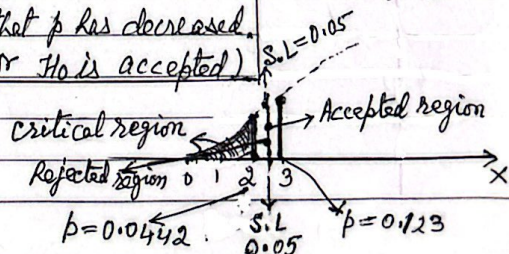 that p has decreased.
r Ho is accepted)
S.L=0.05
Accepted region
critical region
Rejected region 0 1 2 3
X
p=0.0442
S.L
0.05
p=0.123